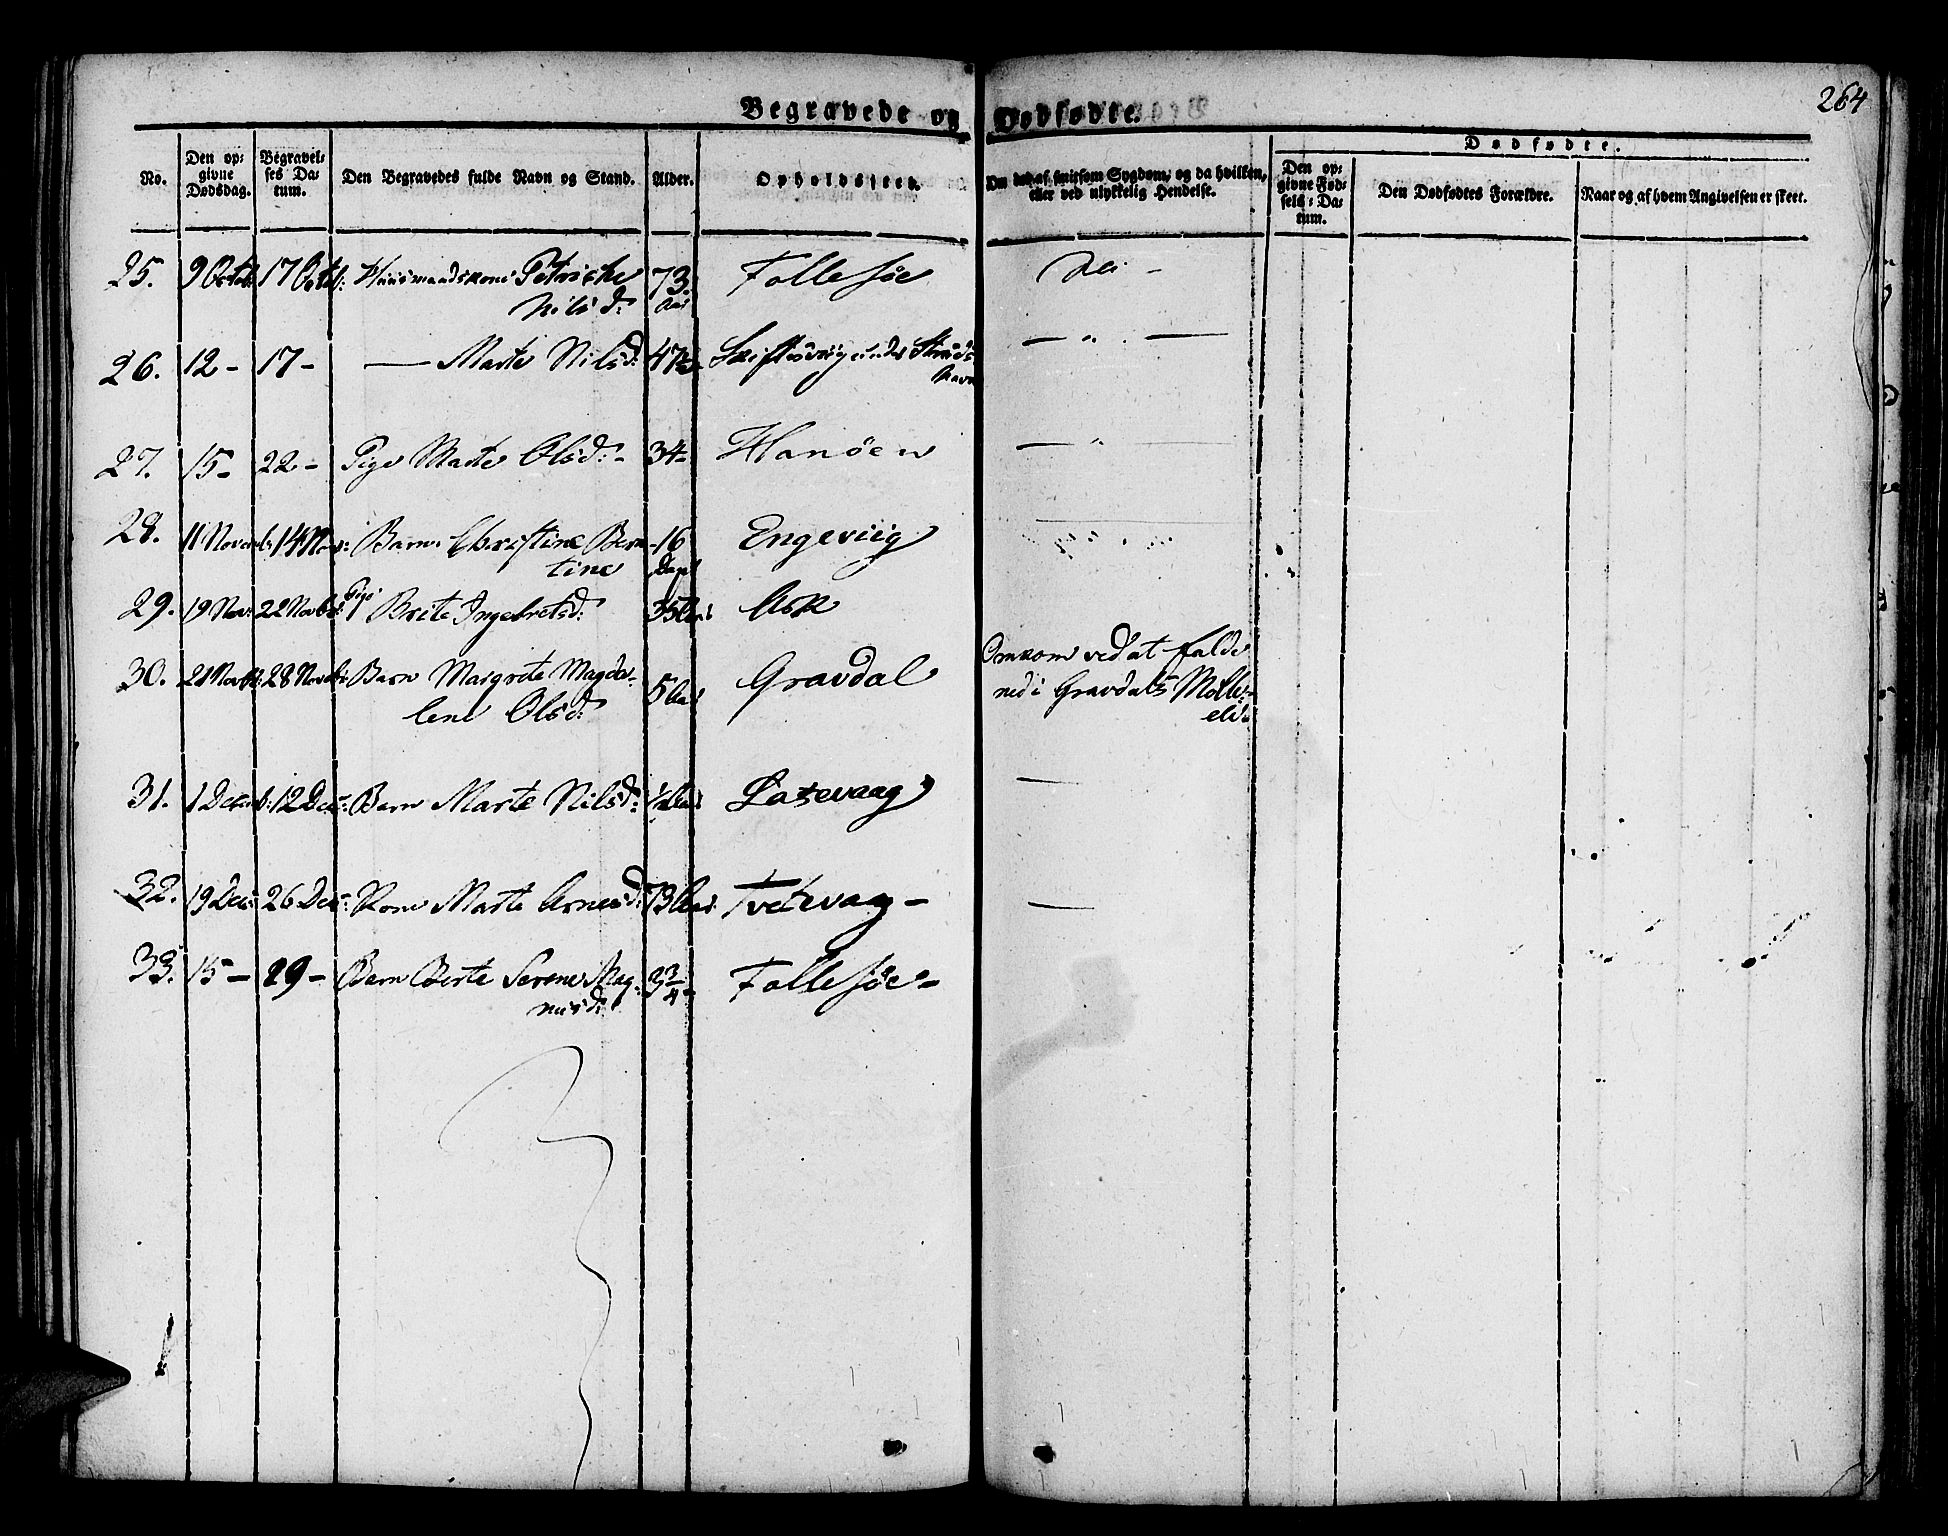 264
Begravede og Dødfødte.
No.
Den op-
givne
Dødsdag.
Begravel-
ses Da-
tum.
Den Begravedes fulde Navn og Stand.
Alder.
Opholdssted.
Om død af smitsom Sygdom, og da hvilken,
eller ved ulykkelig Hendelse.
Dødfødte.
Den op-
givne Fød-
sels-Da-
tum.
Den Dødfødtes Forældre.
Naar og af hvem Angivelsen er skeet.
25. 9 Octob: 17 Octob: Huusmandskone Petriche 73. Follesøe Nei -
Nilsd: Aar
26. 12 - 17 - — Marte Nilsd: 47 — " . —
Havn
27. 15 - 22 - Pige Marte Olsd: - 34 - Hanøen — " —
28. 11 Novemb: 14 Nov: Barn Christine Bern- 16 Engeviig
tine Dage
29. 19 Nov: 22 Novbr: Pige Brite Ingebretsd: 35 Aar Ask
30. 21 Novbr: 28 Novbr: Barn Margrete Magda- 5 Aar Gravdal Omkom ved at falde
lene Olsd: ned i Gravdals Mølle-
elv
31. 1 Decemb: 12 Dec: Barn Marte Nilsd: 1/2 Aar Latevaag —
32. 19 Dec: 26 Dec: Kone Marte Arnesd: 73 Aar Tvetevaag - —
33. 15 - 29 - Barn Berte Serene Mag- 3 3/4 - Follesøe -
nusd: